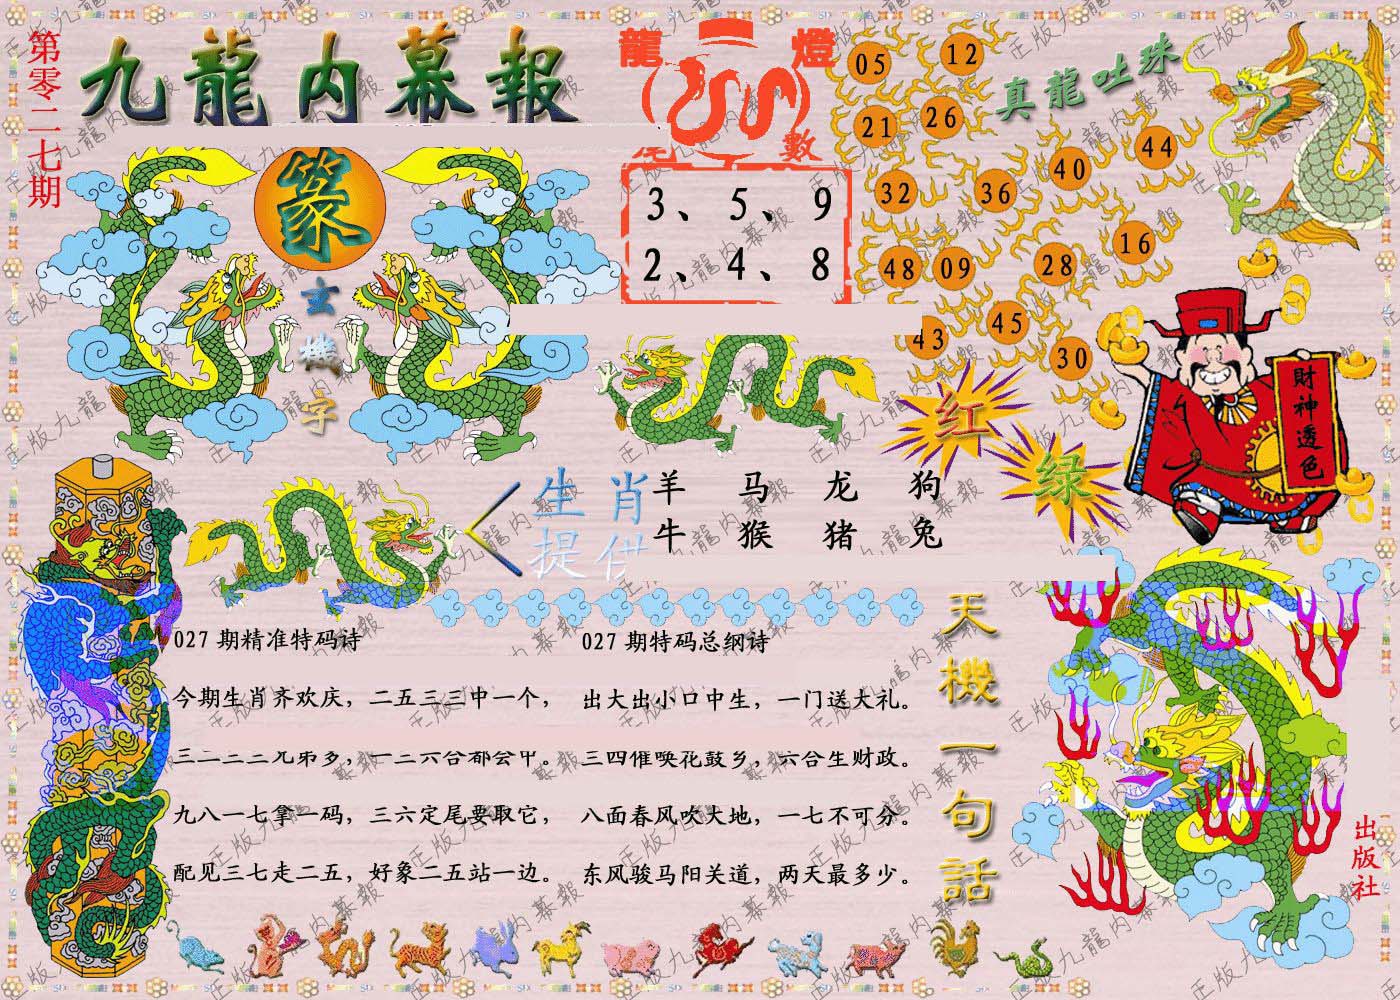 第零二七期
九龍内幕報
龍燈
數
3、5、9
2、4、8
真龍吐珠
05
12
21
26
44
40
32
36
16
48
09
28
43
45
30
篆
玄機字
红
绿
財神透色
生肖
提供
羊 马 龙 狗
牛 猴 猪 兔
027期精准特码诗
今期生肖齐欢庆，二五三三中一个，
九八一七拿一码，三六定尾要取它，
配见三七走二五，好象二五站一边。
027期特码总纲诗
出大出小口中生，一门送大礼。
三四催唤花鼓乡，六合生财政。
八面春风吹大地，一七不可分。
东风骏马阳关道，两天最多少。
天機一句話
出版社
正版九龍内幕報